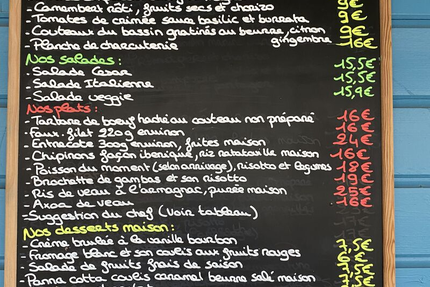 - Camembert rôti, fruits secs et chorizo 9€
- Tomates de crimée sauce basilic et burrata 9€
- Couteaux du bassin gratinés au beurre, citron gingembre 9€
- Planche de charcuterie 16€
Nos salades :
- Salade César 15,5€
- Salade Italienne 15,5€
- Salade veggie 15,9€
Nos plats :
- Tartare de boeuf haché au couteau non préparé 16€
- Faux-filet 220g environ 16€
- Entrecôte 300g environ, frites maison 24€
- Chipirons façon ibérique, riz ratatouille maison 16€
- Poisson du moment (selon arrivage), risotto et légumes 18€
- Brochette de gambas et son risotto 19€
- Ris de veau à l'armagnac, purée maison 25€
- Axoa de veau 16€
- Suggestion du chef (Voir tableau)
Nos desserts maison :
- Crème brulée à la vanille bourbon 7,5€
- Fromage blanc et son coulis aux fruits rouges 6€
- Salade de fruits frais de saison 7,5€
- Panna cotta, coulis caramel beurre salé maison 7,5€